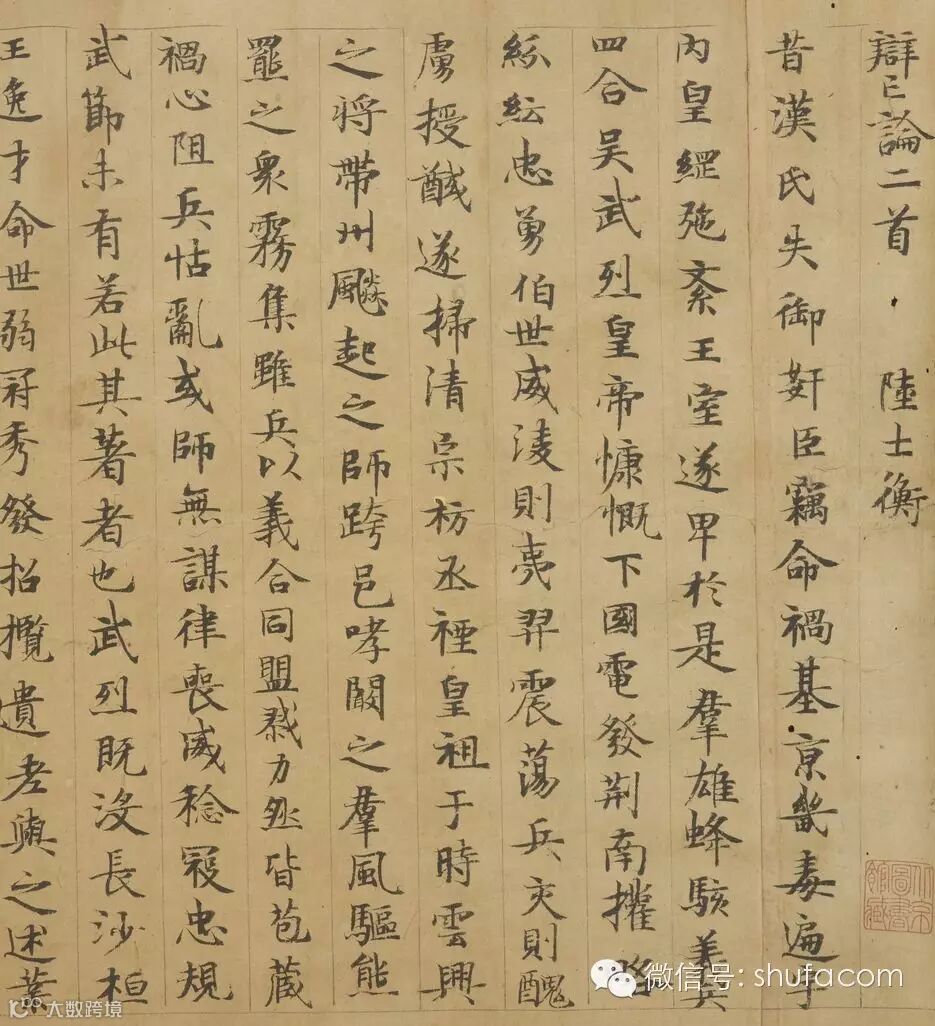 辯亡論二首 陸士衡
昔漢氏失御姧臣竊命禍基京畿毒遍宇
內皇綱弛紊王室遂卑於是羣雄蜂駭義兵
四合吴武烈皇帝慷慨下國電發荆南攉略
紛紜忠勇伯世威淩則夷羿震蕩兵交則醜
虜授馘遂掃清宗祊烝禋皇祖于時雲興
之將帶州飈起之師跨邑哮闞之羣風驅熊
羆之衆霧集雖兵以義合同盟勠力然皆苞藏
禍心阻兵怙亂或師無謀律喪威稔寇忠規
武節未有若此其著者也武烈既没長沙桓
王逸才命世弱冠秀發招攬遺老與之述業
微信号: shufacom
大数跨境